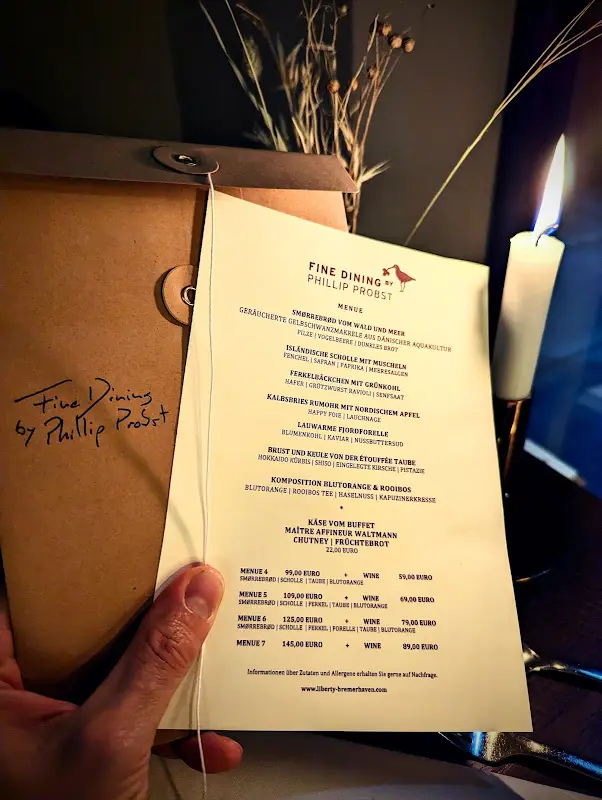 Fine Dining
by Phillip Probst
FINE DINING BY
PHILLIP PROBST
MENUE
SMØRREBRØD VOM WALD UND MEER
GERÄUCHERTE GELBSCHWANZMAKRELE AUS DÄNISCHER AQUAKULTUR
PILZE | VOGELBEERE | DUNKLES BROT
ISLÄNDISCHE SCHOLLE MIT MUSCHELN
FENCHEL | SAFRAN | PAPRIKA | MEERESALGEN
FERKELBÄCKCHEN MIT GRÜNKOHL
HAFER | GRÜTZWURST RAVIOLI | SENFSAAT
KALBSBRIES RUMOHR MIT NORDISCHEM APFEL
HAPPY FOIE | LAUCHNAGE
LAUWARME FJORDFORELLE
BLUMENKOHL | KAVIAR | NUSSBUTTERSUD
BRUST UND KEULE VON DER ÉTOUFFÉE TAUBE
HOKKAIDO KÜRBIS | SHISO | EINGELEGTE KIRSCHE | PISTAZIE
KOMPOSITION BLUTORANGE & ROOIBOS
BLUTORANGE | ROOIBOS TEE | HASELNUSS | KAPUZINERKRESSE
*
KÄSE VOM BUFFET
MAÎTRE AFFINEUR WALTMANN
CHUTNEY | FRÜCHTEBROT
22,00 EURO
MENUE 4 99,00 EURO + WINE 59,00 EURO
SMØRREBRØD | SCHOLLE | TAUBE | BLUTORANGE
MENUE 5 109,00 EURO + WINE 69,00 EURO
SMØRREBRØD | SCHOLLE | FERKEL | TAUBE | BLUTORANGE
MENUE 6 125,00 EURO + WINE 79,00 EURO
SMØRREBRØD | SCHOLLE | FERKEL | FORELLE | TAUBE | BLUTORANGE
MENUE 7 145,00 EURO + WINE 89,00 EURO
Informationen über Zutaten und Allergene erhalten Sie gerne auf Nachfrage.
www.liberty-bremerhaven.com